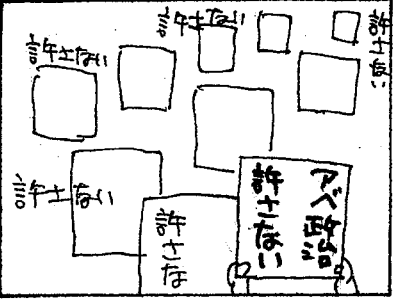 許さない
許さない
許さない
許さない
許さな
アベ政治
許さない